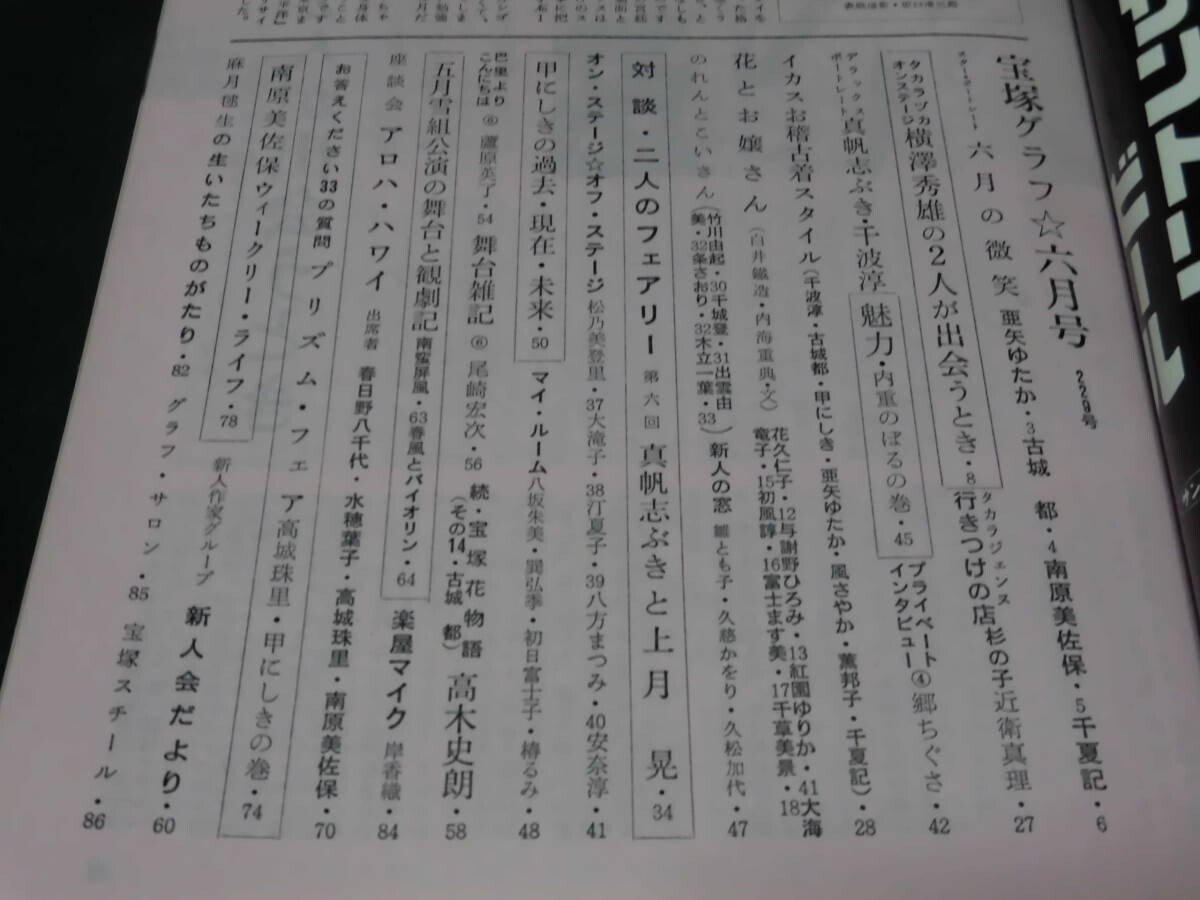 宝塚グラフ☆六月号 229号
スターポートレート 六月の微笑 亜矢ゆたか・3 古城 都・4 南原美佐保・5 千夏記・6
タカラヅカオンステージ 横澤秀雄の2人が出会うとき・8
タカラジェンヌ行きつけの店 杉の子 近衛真理・27
デラックスポートレート 真帆志ぶき・千波淳
魅力・内重のぼるの巻・45
プライベートインタビュー④ 郷ちぐさ・42
イカスお稽古着スタイル(千波淳・古城都・甲にしき・亜矢ゆたか・風さやか・薫邦子・千夏記)・28
花とお嬢さん(白井鐵造・内海重典・文)花久仁子・12 与謝野ひろみ・13 紅園ゆりか・41 大海竜子・15 初風諄・16 富士ます美・17 千草美景・18
のれんとこいさん(竹川由起・30 千城登・31 出雲由美・32 条さおり・32 木立一葉・33)
新人の窓 雛とも子・久慈かをり・久松加代・47
対談・二人のフェアリー 第六回 真帆志ぶきと上月 晃・34
オン・ステージ☆オフ・ステージ 松乃美登里・37 大滝子・38 汀夏子・39 八方まつみ・40 安奈淳・41
甲にしきの過去・現在・未来・50
マイ・ルーム 八坂朱美・巽弘季・初日富士子・椿るみ・48
巴里よりこんにちは⑥ 蘆原英了・54
舞台雑記⑥ 尾崎宏次・56
続・宝塚花物語(その14・古城 都) 高木史朗・58
五月雪組公演の舞台と観劇記 南蛮屏風・63 春風とバイオリン・64
楽屋マイク 岸香織・84
座談会 アロハ・ハワイ 出席者 春日野八千代・水穂葉子・高城珠里・南原美佐保・70
お答えください33の質問 プリズム・フェア 高城珠里・甲にしきの巻・74
南原美佐保ウィークリー・ライフ・78
新人作家グループ 新人会だより・60
麻月鞠生の生いたちものがたり・82
グラフ・サロン・85
宝塚スチール・86